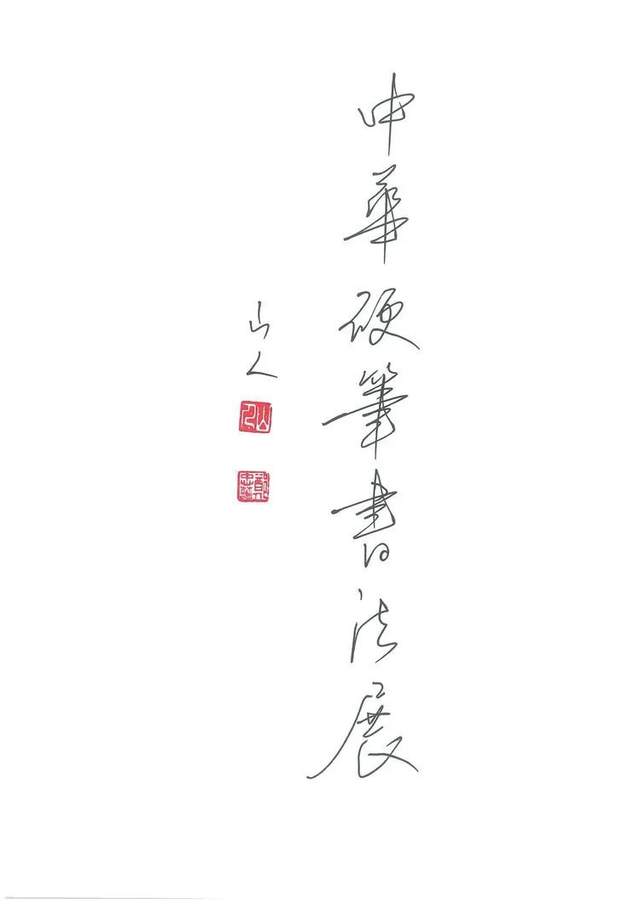 中華硬筆書法展
山人
山人